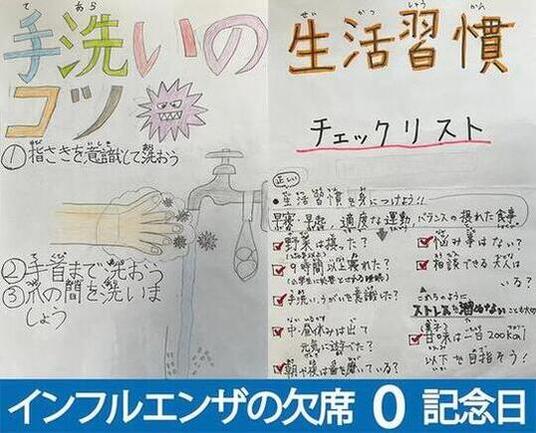 手洗いの
コツ
①指さきを意識して洗おう
②手首まで洗おう
③爪の間を洗いま
しょう
生活習慣
チェックリスト
正しい
●生活習慣を身につけよう!!
早寝・早起、適度な運動、バランスの摂れた食事
野菜は摂った?
9時間以上寝れた?
手洗い、うがいを意識した?
中・昼休みは出て
元気に遊べた?
朝や夜は歯を磨いている?
悩み事はない?
相談できる大人は
いる?
これらのように
ストレスを溜めないことも大切
甘味は一日200Kcal
以下を目指そう!
インフルエンザの欠席 0 記念日